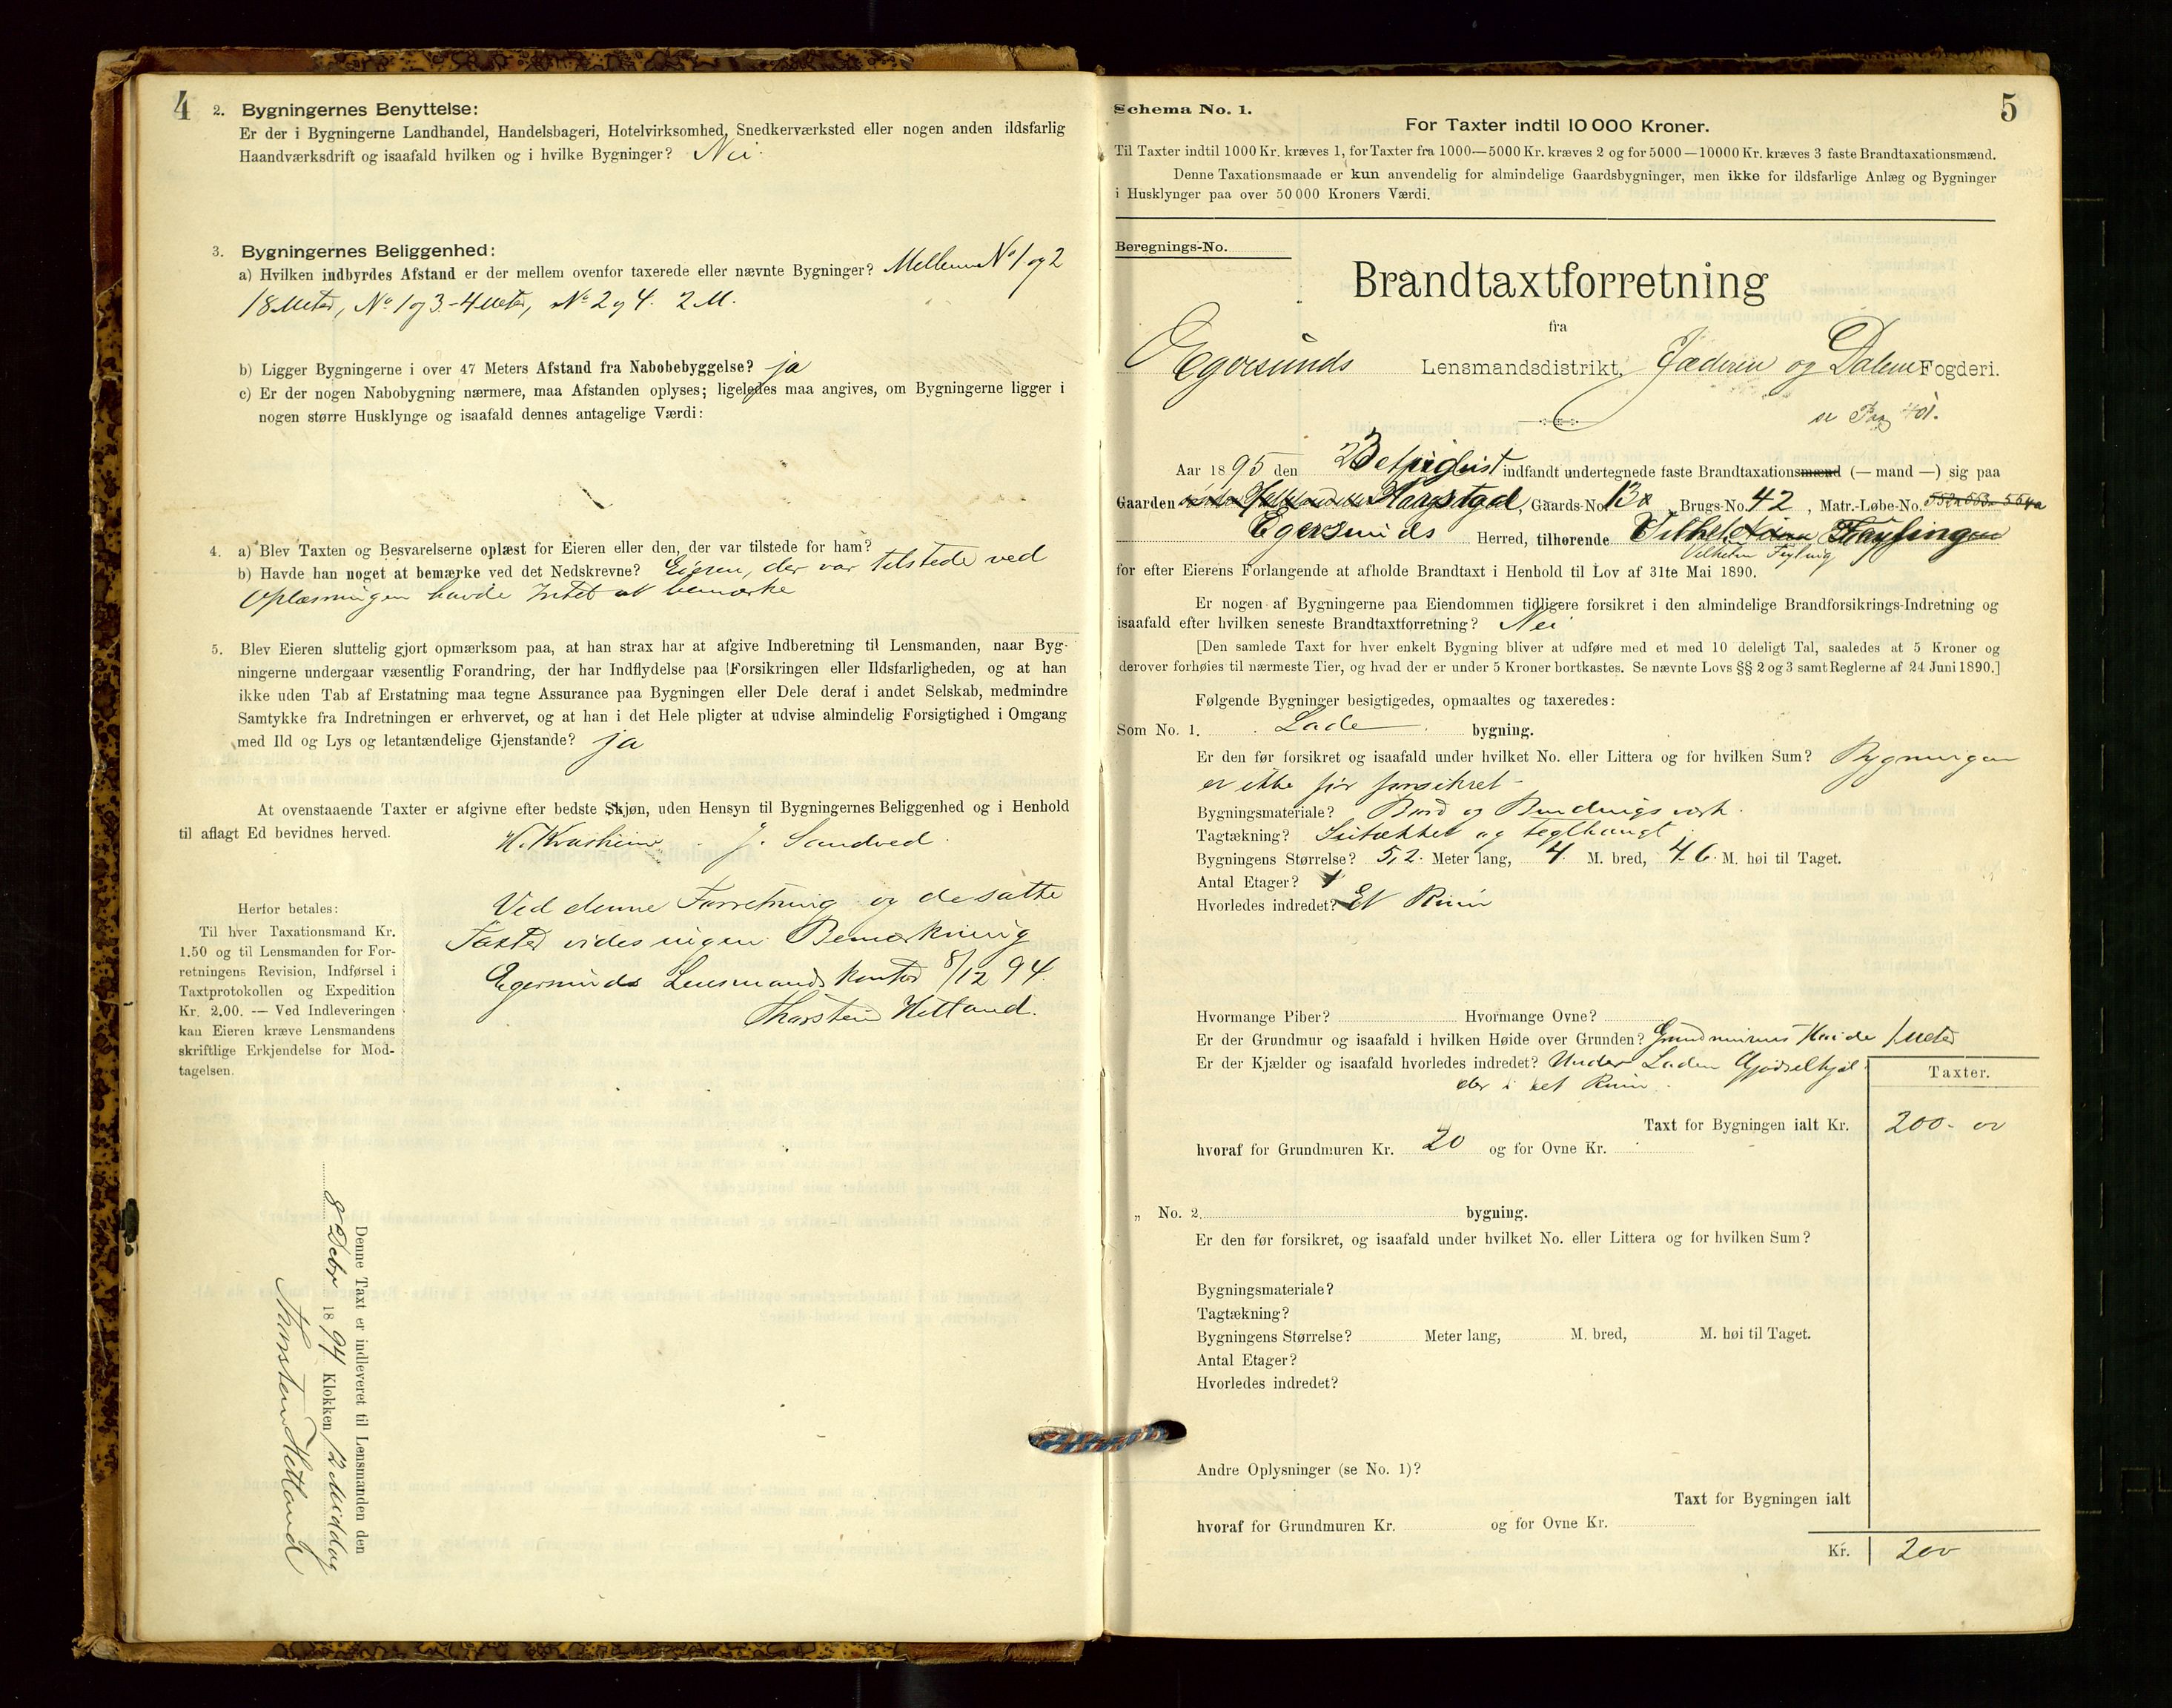 4
2. Bygningernes Benyttelse:
Er der i Bygningerne Landhandel, Handelsbageri, Hotelvirksomhed, Snedkerværksted eller nogen anden ildsfarlig
Haandværksdrift og isaafald hvilken og i hvilke Bygninger? Nei.
3. Bygningernes Beliggenhed:
a) Hvilken indbyrdes Afstand er der mellem ovenfor taxerede eller nævnte Bygninger? Mellem No 1 og 2
18 Meter, No 1 og 3 - 4 Meter, No 2 og 4. 2 M.
b) Ligger Bygningerne i over 47 Meters Afstand fra Nabobebyggelse? ja
c) Er der nogen Nabobygning nærmere, maa Afstanden oplyses; ligeledes maa angives, om Bygningerne ligger i
nogen større Husklynge og isaafald dennes antagelige Værdi:
4. a) Blev Taxten og Besvarelserne oplæst for Eieren eller den, der var tilstede for ham?
b) Havde han noget at bemærke ved det Nedskrevne? Eieren, der var tilstede ved
Oplæsningen havde Intet at bemærke
5. Blev Eieren sluttelig gjort opmærksom paa, at han strax har at afgive Indberetning til Lensmanden, naar Byg-
ningerne undergaar væsentlig Forandring, der har Indflydelse paa Forsikringen eller Ildsfarligheden, og at han
ikke uden Tab af Erstatning maa tegne Assurance paa Bygningen eller Dele deraf i andet Selskab, medmindre
Samtykke fra Indretningen er erhvervet, og at han i det Hele pligter at udvise almindelig Forsigtighed i Omgang
med Ild og Lys og letantændelige Gjenstande? ja
At ovenstaaende Taxter er afgivne efter bedste Skjøn, uden Hensyn til Bygningernes Beliggenhed og i Henhold
til aflagt Ed bevidnes herved.
J. Sandved.
Ved denne Forretning og de satte
Taxter vides ingen Bemærkning
Egersunds Lensmandskontor 8/12 94.
Thorsten Hetland.
Herfor betales:
Til hver Taxationsmand Kr.
1.50 og til Lensmanden for For-
retningens Revision, Indførsel i
Taxtprotokollen og Expedition
Kr. 2.00. — Ved Indleveringen
kan Eieren kræve Lensmandens
skriftlige Erkjendelse for Mod-
tagelsen.
Denne Taxt er indleveret til Lensmanden den
8 Debr 1894 Klokken 12 Middag
Thorsten Hetland
Schema No. 1.
5
For Taxter indtil 10 000 Kroner.
Til Taxter indtil 1000 Kr. kræves 1, for Taxter fra 1000—5000 Kr. kræves 2 og for 5000—10000 Kr. kræves 3 faste Brandtaxationsmænd.
Denne Taxationsmaade er kun anvendelig for almindelige Gaardsbygninger, men ikke for ildsfarlige Anlæg og Bygninger
i Husklynger paa over 50 000 Kroners Værdi.
Beregnings-No.
Brandtaxtforretning
fra
Egersunds Lensmandsdistrikt, Jæderen og Dalene Fogderi.
se Pag 401.
Aar 1895 den indfandt undertegnede faste Brandtaxationsmænd (— mand —) sig paa
Gaarden , Gaards-No. 13 , Brugs-No. 42 , Matr.-Løbe-No.
Egersunds Herred, tilhørende
Vilhelm
for efter Eierens Forlangende at afholde Brandtaxt i Henhold til Lov af 31te Mai 1890.
Er nogen af Bygningerne paa Eiendommen tidligere forsikret i den almindelige Brandforsikrings-Indretning og
isaafald efter hvilken seneste Brandtaxtforretning? Nei
[Den samlede Taxt for hver enkelt Bygning bliver at udføre med et med 10 deleligt Tal, saaledes at 5 Kroner og
derover forhøies til nærmeste Tier, og hvad der er under 5 Kroner bortkastes. Se nævnte Lovs §§ 2 og 3 samt Reglerne af 24 Juni 1890.]
Følgende Bygninger besigtigedes, opmaaltes og taxeredes:
Som No. 1. Lade bygning.
Er den før forsikret og isaafald under hvilket No. eller Littera og for hvilken Sum? Bygningen
er ikke før forsikret
Bygningsmateriale? Bord og Bindingsværk.
Tagtækning? og teglhængt
Bygningens Størrelse? 5,2. Meter lang, 4 M. bred, 4.6. M. høi til Taget.
Antal Etager? 1
Hvorledes indredet? Et Rum
Hvormange Piber? Hvormange Ovne?
Er der Grundmur og isaafald i hvilken Høide over Grunden? Grundmurens Høide 1 Meter
Er der Kjælder og isaafald hvorledes indredet? Under Laden Gjødselkjæl-
der i et Rum.
Taxter.
Taxt for Bygningen ialt Kr. 200. 00
hvoraf for Grundmuren Kr. 20 og for Ovne Kr.
„ No. 2. bygning.
Er den før forsikret, og isaafald under hvilket No. eller Littera og for hvilken Sum?
Bygningsmateriale?
Tagtækning?
Bygningens Størrelse? Meter lang, M. bred, M. høi til Taget.
Antal Etager?
Hvorledes indredet?
Andre Oplysninger (se No. 1)?
Taxt for Bygningen ialt
hvoraf for Grundmuren Kr. og for Ovne Kr.
Kr. 200